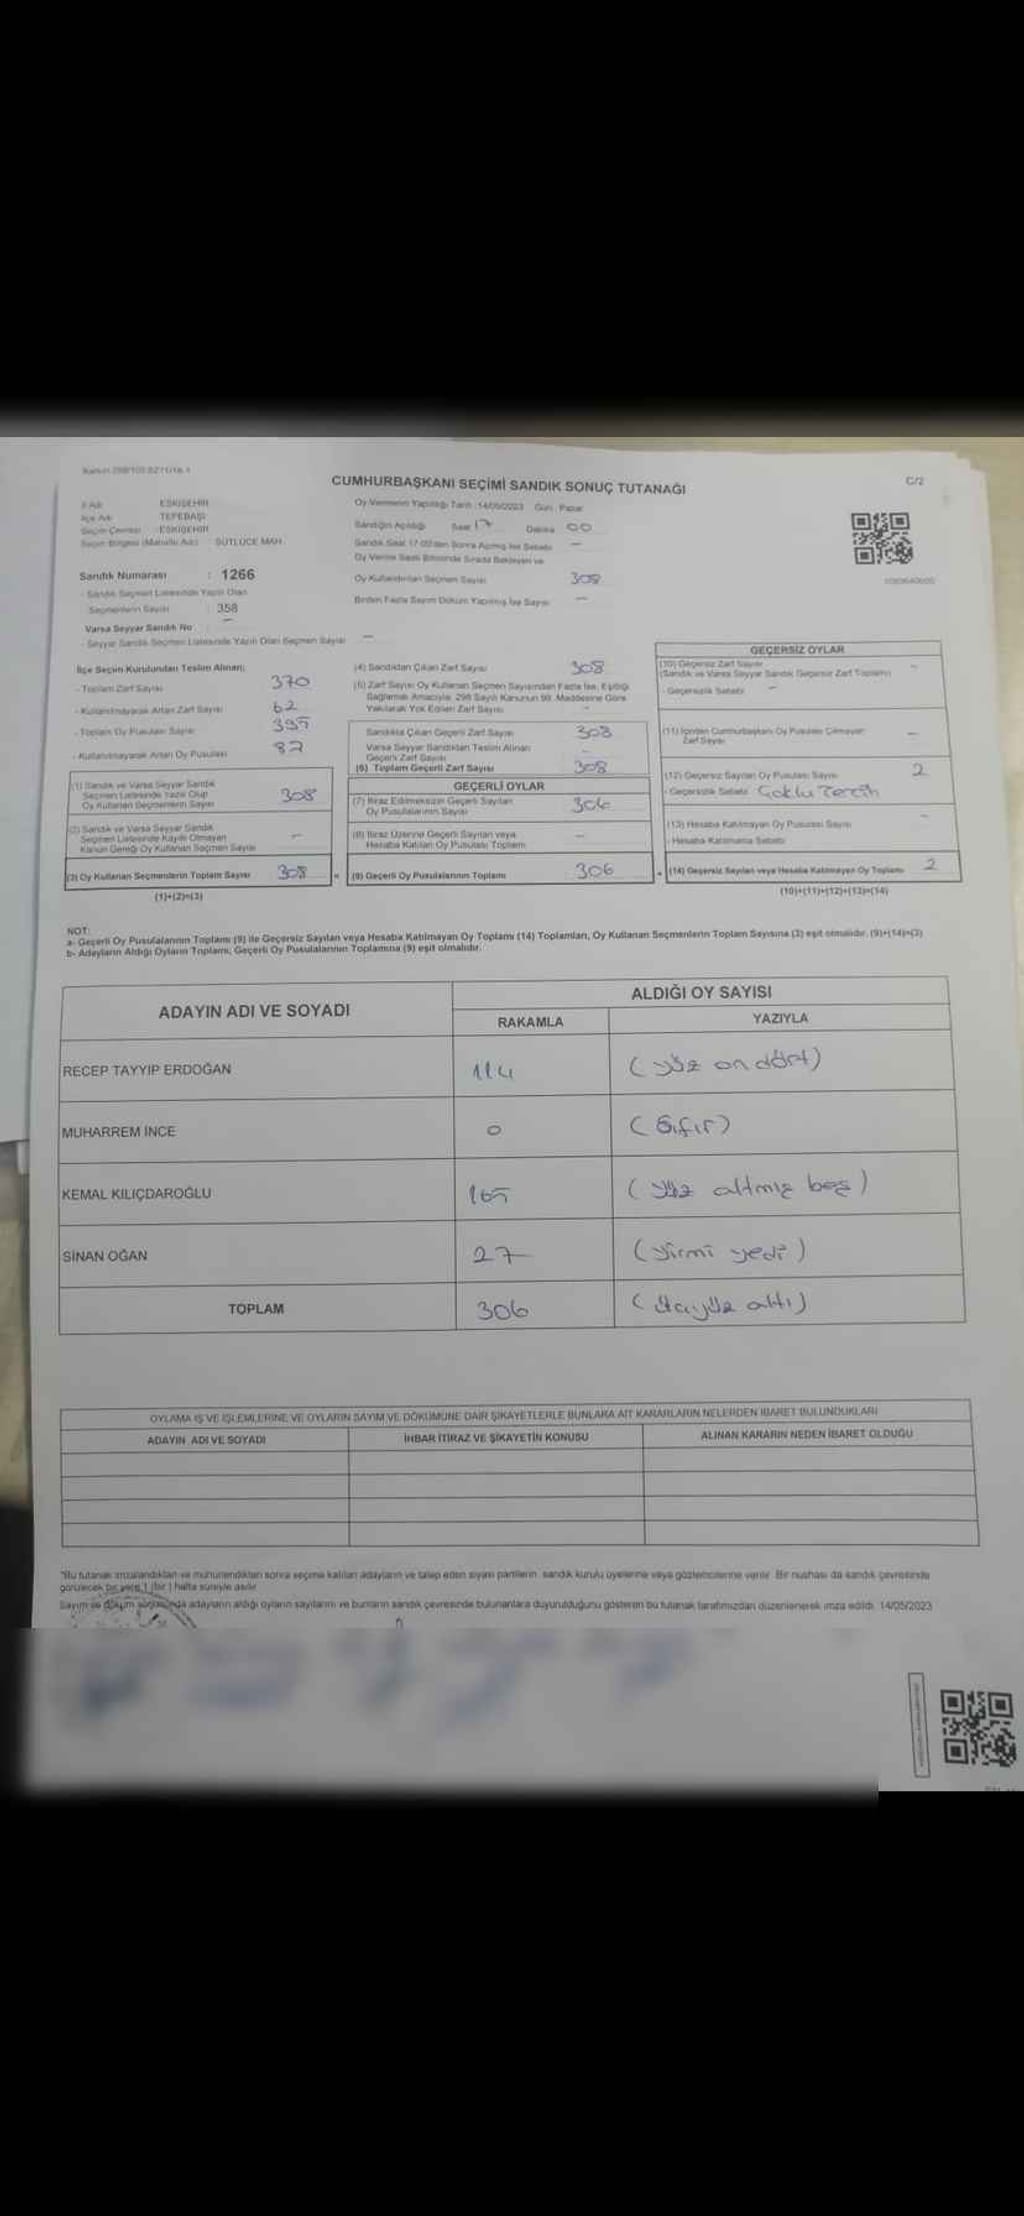 CUMHURBAŞKANI SEÇİMİ SANDIK SONUÇ TUTANAĞI
C/2
İl Adı ESKİŞEHİR
İlçe Adı TEPEBAŞI
Seçim Çevresi : ESKİŞEHİR
Seçim Bölgesi (Mahalle Adı) SÜTLÜCE MAH.
Sandık Numarası : 1266
- Sandık Seçmen Listesinde Yazılı Olan
Seçmenlerin Sayısı : 358
Varsa Seyyar Sandık No –
- Seyyar Sandık Seçmen Listesinde Yazılı Olan Seçmen Sayısı –
Oy Vermenin Yapıldığı Tarih :14/05/2023 Gün : Pazar
Sandığın Açıldığı Saat 17 Dakika 00
Sandık Saat 17.00'den Sonra Açılmış İse Sebebi –
Oy Verme Saati Bitiminde Sırada Bekleyen ve
Oy Kullandırılan Seçmen Sayısı 308
Birden Fazla Sayım Döküm Yapılmış İse Sayısı –
İlçe Seçim Kurulundan Teslim Alınan;
- Toplam Zarf Sayısı 370
- Kullanılmayarak Artan Zarf Sayısı 62
- Toplam Oy Pusulası Sayısı 395
- Kullanılmayarak Artan Oy Pusulası 87
(1) Sandık ve Varsa Seyyar Sandık
Seçmen Listesinde Yazılı Olup
Oy Kullanan Seçmenlerin Sayısı 308
(2) Sandık ve Varsa Seyyar Sandık
Seçmen Listesinde Kayıtlı Olmayan
Kanun Gereği Oy Kullanan Seçmen Sayısı –
(3) Oy Kullanan Seçmenlerin Toplam Sayısı 308
(1)+(2)=(3)
(4) Sandıktan Çıkan Zarf Sayısı 308
(5) Zarf Sayısı Oy Kullanan Seçmen Sayısından Fazla İse, Eşitliği
Sağlamak Amacıyla, 298 Sayılı Kanunun 98. Maddesine Göre
Yakılarak Yok Edilen Zarf Sayısı –
Sandıkta Çıkan Geçerli Zarf Sayısı 308
Varsa Seyyar Sandıktan Teslim Alınan
Geçerli Zarf Sayısı –
(6) Toplam Geçerli Zarf Sayısı 308
GEÇERLİ OYLAR
(7) İtiraz Edilmeksizin Geçerli Sayılan
Oy Pusulalarının Sayısı 306
(8) İtiraz Üzerine Geçerli Sayılan veya
Hesaba Katılan Oy Pusulası Toplamı –
= (9) Geçerli Oy Pusulalarının Toplamı 306
GEÇERSİZ OYLAR
(10) Geçersiz Zarf Sayısı –
(Sandık ve Varsa Seyyar Sandık Geçersiz Zarf Toplamı)
- Geçersizlik Sebebi –
(11) İçinden Cumhurbaşkanı Oy Pusulası Çıkmayan
Zarf Sayısı –
(12) Geçersiz Sayılan Oy Pusulası Sayısı 2
- Geçersizlik Sebebi Çoklu Tercih
(13) Hesaba Katılmayan Oy Pusulası Sayısı –
- Hesaba Katılmama Sebebi
+ (14) Geçersiz Sayılan veya Hesaba Katılmayan Oy Toplamı 2
(10)+(11)+(12)+(13)=(14)
NOT:
a- Geçerli Oy Pusulalarının Toplamı (9) ile Geçersiz Sayılan veya Hesaba Katılmayan Oy Toplamı (14) Toplamları, Oy Kullanan Seçmenlerin Toplam Sayısına (3) eşit olmalıdır. (9)+(14)=(3)
b- Adayların Aldığı Oyların Toplamı, Geçerli Oy Pusulalarının Toplamına (9) eşit olmalıdır.
ADAYIN ADI VE SOYADI ALDIĞI OY SAYISI
RAKAMLA YAZIYLA
RECEP TAYYİP ERDOĞAN 114 (yüz on dört)
MUHARREM İNCE 0 (Sıfır)
KEMAL KILIÇDAROĞLU 165 (yüz altmış beş)
SİNAN OĞAN 27 (yirmi yedi)
TOPLAM 306 (üçyüz altı)
OYLAMA İŞ VE İŞLEMLERİNE VE OYLARIN SAYIM VE DÖKÜMÜNE DAİR ŞİKAYETLERLE BUNLARA AİT KARARLARIN NELERDEN İBARET BULUNDUKLARI
ADAYIN ADI VE SOYADI İHBAR İTİRAZ VE ŞİKAYETİN KONUSU ALINAN KARARIN NEDEN İBARET OLDUĞU
*Bu tutanak imzalandıktan ve mühürlendikten sonra seçime katılan adayların ve talep eden siyasi partilerin sandık kurulu üyelerine veya gözlemcilerine verilir. Bir nüshası da sandık çevresinde
görülecek bir yere 1 (bir) hafta süreyle asılır.
Sayım ve döküm sonucunda adayların aldığı oyların sayılarını ve bunların sandık çevresinde bulunanlara duyurulduğunu gösteren bu tutanak tarafımızdan düzenlenerek imza edildi. 14/05/2023